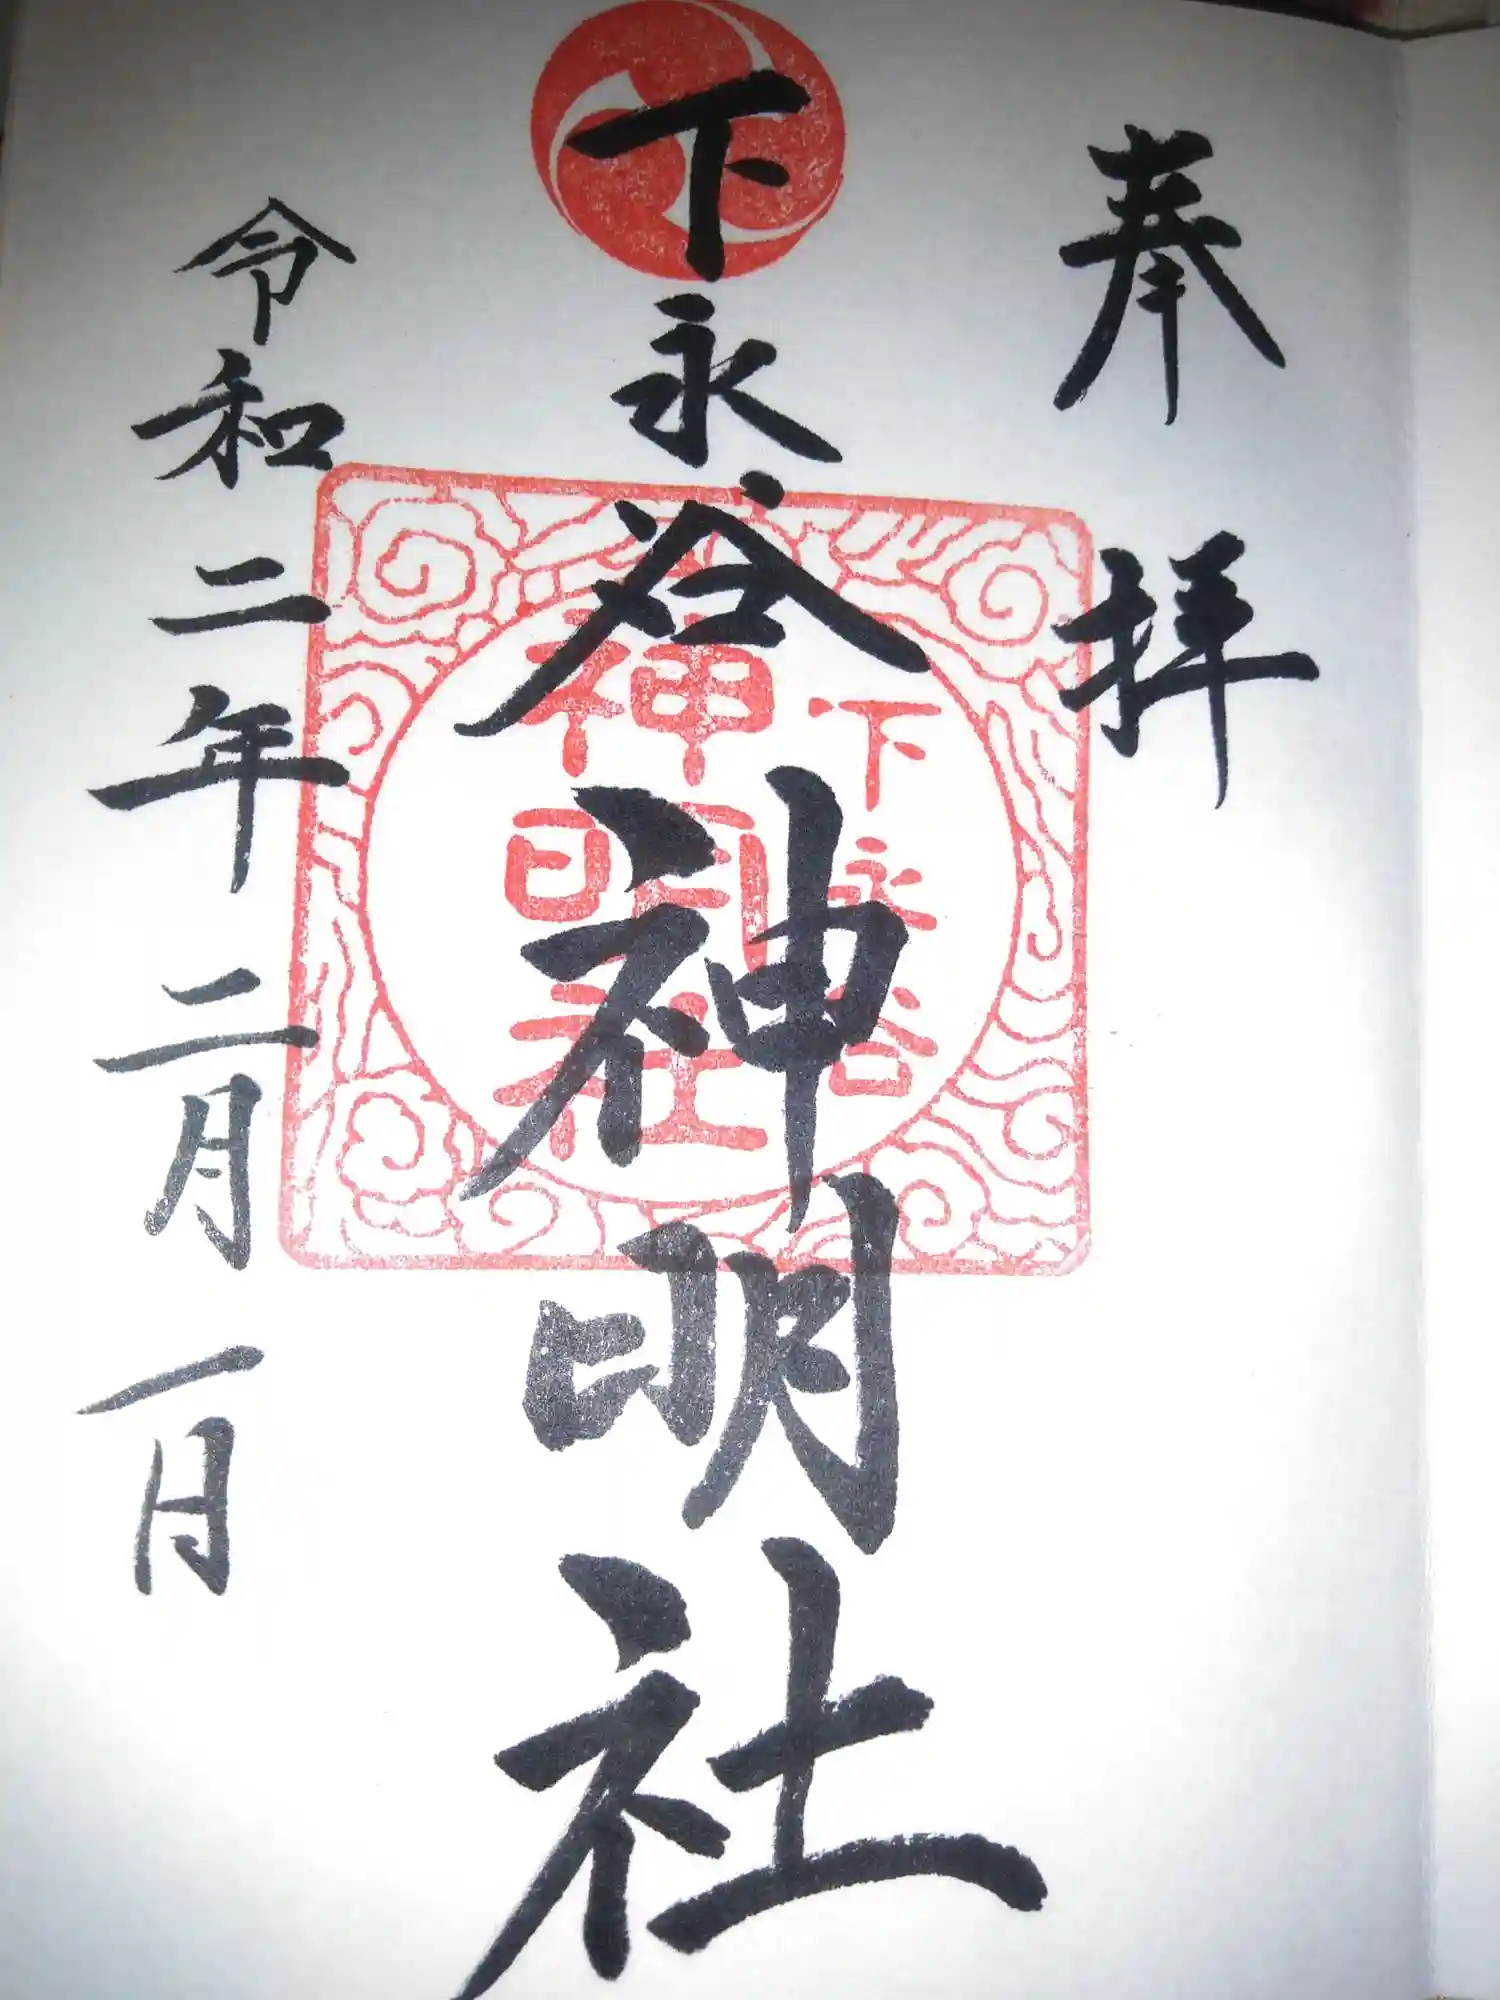 奉拝
下永谷神明社
令和二年二月一日
下永谷
神明社